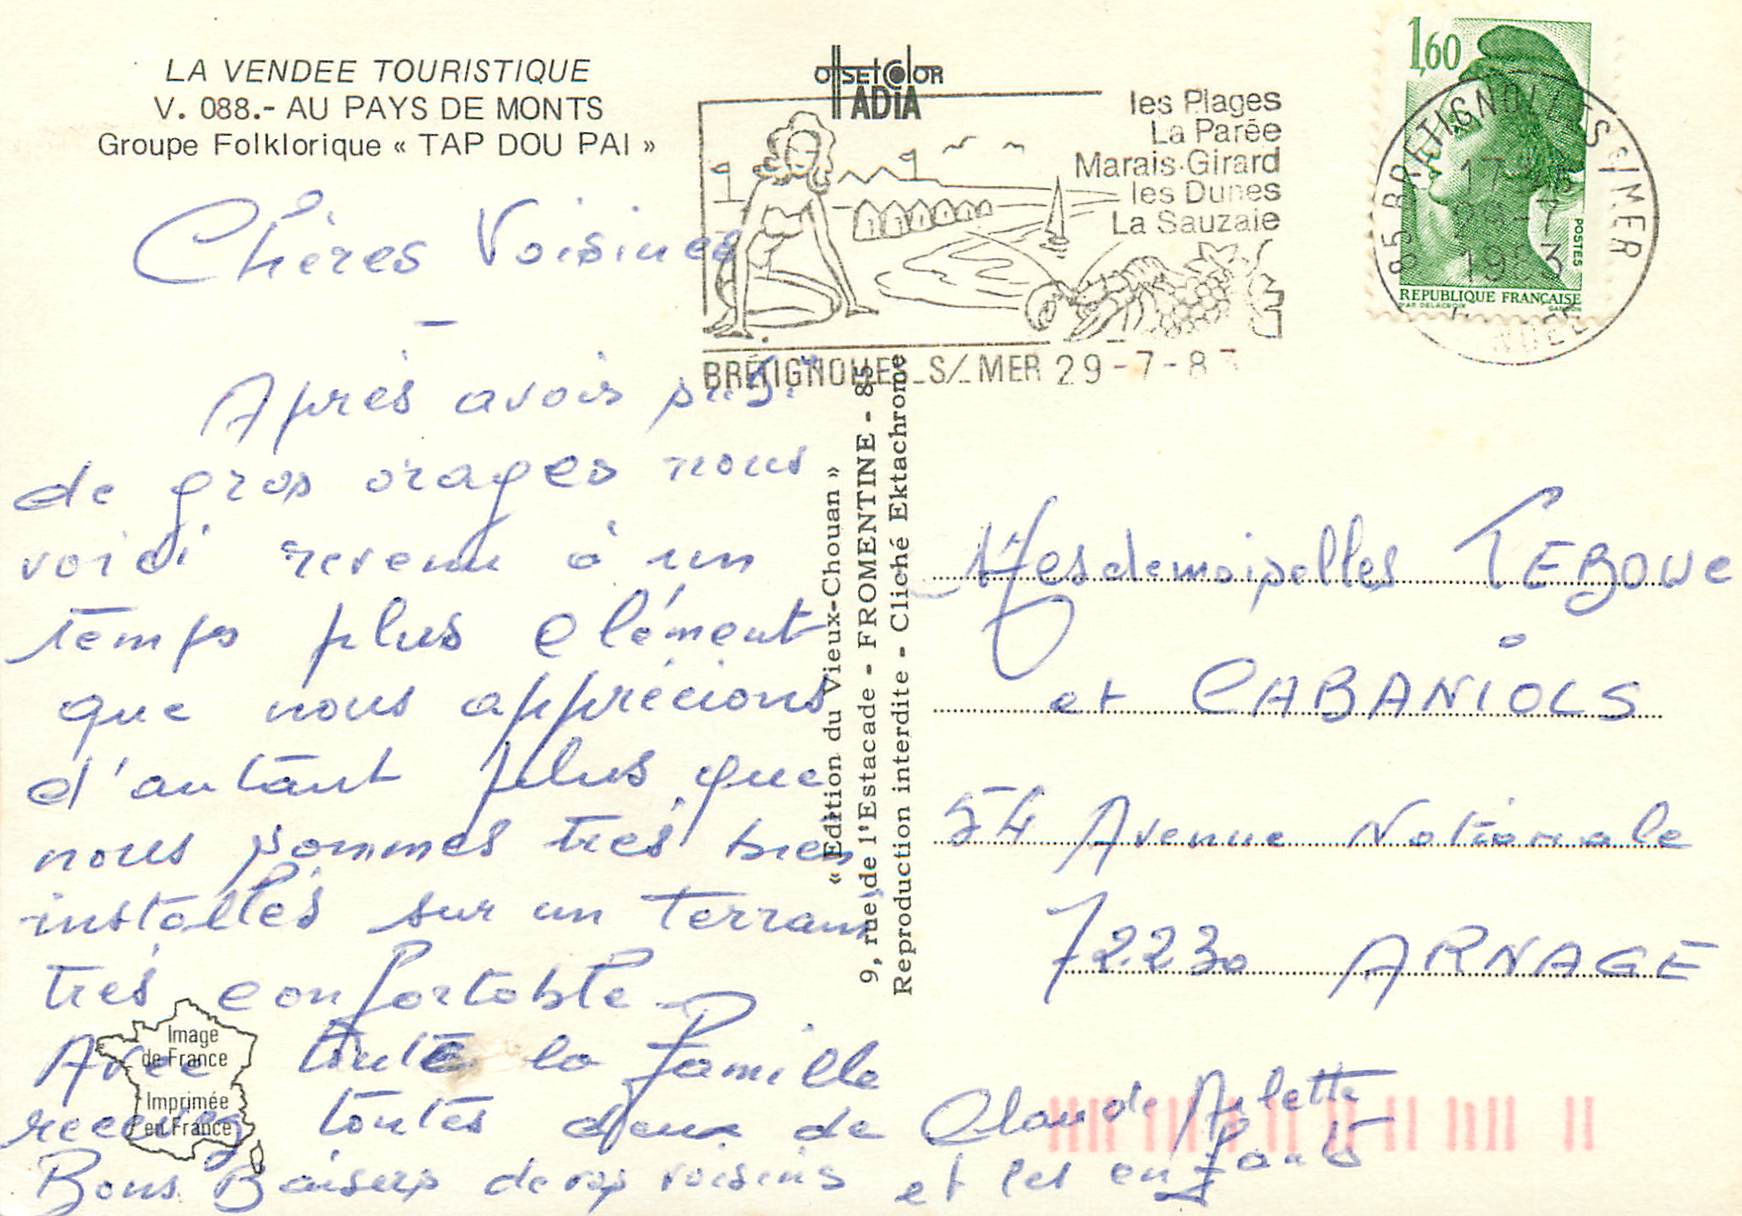 LA VENDEE TOURISTIQUE
V. 088.- AU PAYS DE MONTS
Groupe Folklorique « TAP DOU PAI »
Chères Voisines
Après avoir subi
de gros orages nous
voici revenu à un
temps plus clément
que nous apprécions
d'autant plus que
nous sommes très bien
installés sur un terrain
très confortable
Avec toute la famille
recevez toutes deux de
Bons Baisers de vos voisins
Claude Arlette
et les enfants
Image
de France
Imprimée
en France
offset color
IADIA
les Plages
La Parée
Marais-Girard
les Dunes
La Sauzaie
BRÉTIGNOLLES S/ MER 29-7-83
1,60
REPUBLIQUE FRANÇAISE
POSTES
85 BRETIGNOLLES S/MER
29-7
1983
VENDEE
« Edition du Vieux-Chouan »
9, rue de l'Estacade - FROMENTINE - 85
Reproduction interdite - Cliché Ektachrome
Mesdemoiselles LEBOUC
et CABANIOLS
54 Avenue Nationale
72230 ARNAGE